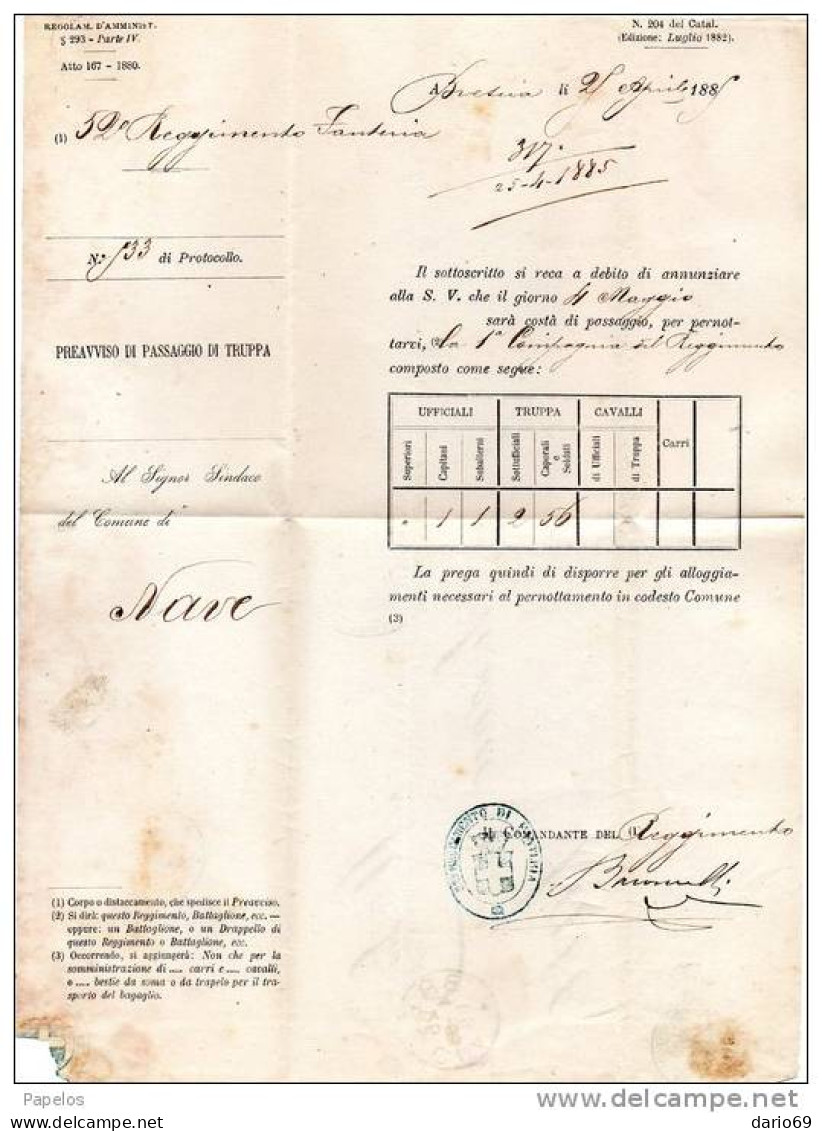 REGOLAM. D'AMMINIST.
§ 293 - Parte IV.
Atto 167 - 1880.
N. 204 del Catal.
(Edizione: Luglio 1882).
A Brescia li 25 Aprile 1885
(1) 52º Reggimento Fanteria
317.
25-4-1885
N.º 533 di Protocollo.
PREAVVISO DI PASSAGGIO DI TRUPPA
Al Signor Sindaco
del Comune di
Nave
Il sottoscritto si reca a debito di annunziare
alla S. V. che il giorno 4 Maggio
sarà costà di passaggio, per pernot-
tarvi, (2) la 1ª Compagnia del Reggimento
composto come segue:
UFFICIALI TRUPPA CAVALLI
Superiori Capitani Subalterni Sottufficiali Caporali e Soldati di Ufficiali di Truppa Carri
1 1 2 56
La prega quindi di disporre per gli alloggia-
menti necessari al pernottamento in codesto Comune
(3)
IL COMANDANTE DEL (1) Reggimento
(1) Corpo o distaccamento, che spedisce il Preavviso.
(2) Si dirà: questo Reggimento, Battaglione, ecc. —
oppure: un Battaglione, o un Drappello di
questo Reggimento o Battaglione, ecc.
(3) Occorrendo, si aggiungerà: Non che per la
somministrazione di .... carri e .... cavalli,
o .... bestie da soma o da trapelo per il tra-
sporto del bagaglio.
Papelos
delcampe.net
dario69